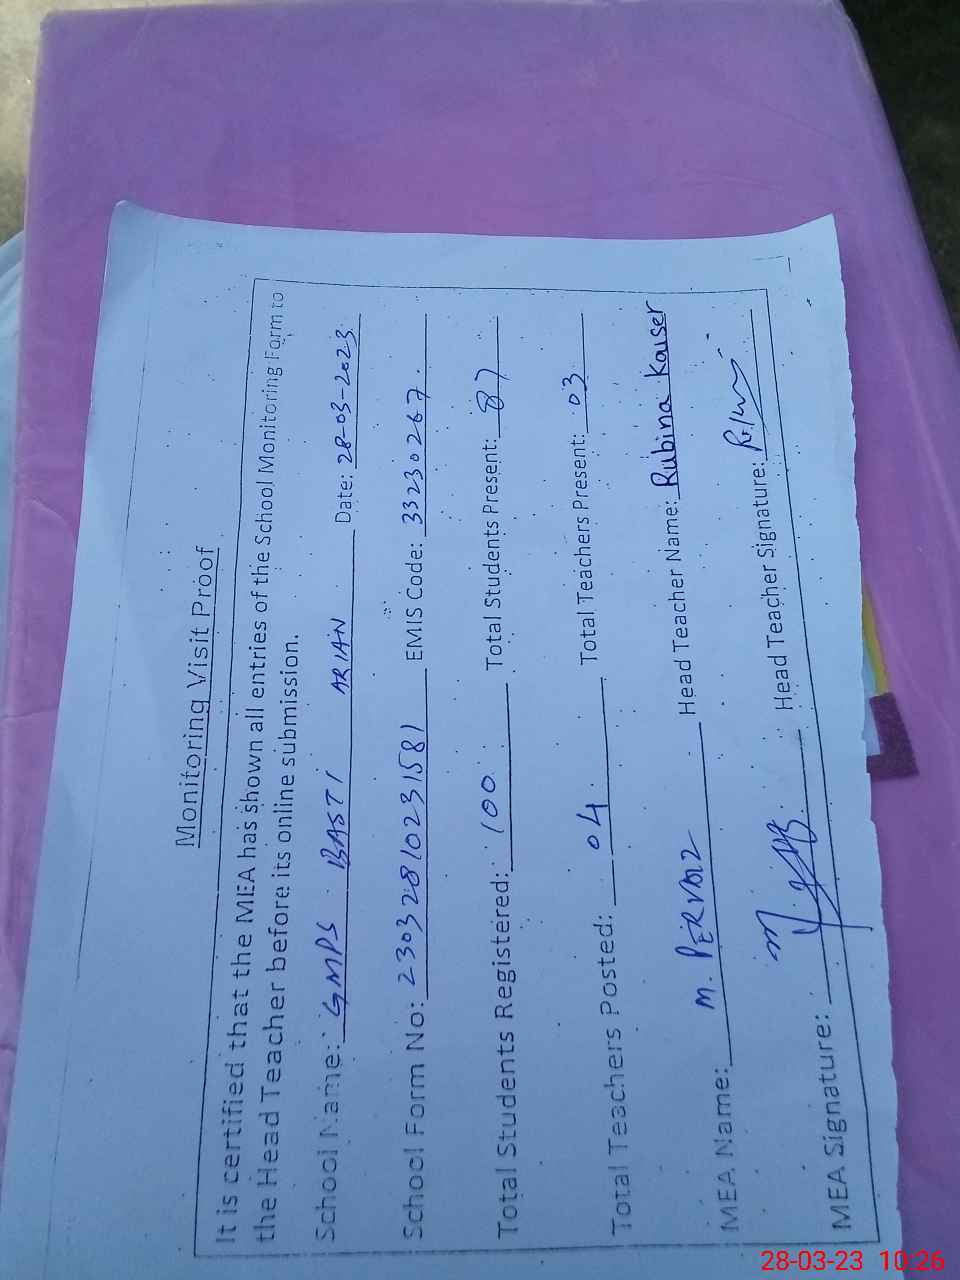 Monitoring Visit Proof
It is certified that the MEA has shown all entries of the School Monitoring Form to
the Head Teacher before its online submission.
School Name: GMPS BASTI ARIAN Date: 28-03-2023
School Form No: 23032810231581 EMIS Code: 33230267.
Total Students Registered: 100 Total Students Present: 87
Total Teachers Posted: 04 Total Teachers Present: 03
MEA Name: M. PERVAIZ Head Teacher Name: Rubina Kauser
MEA Signature: Head Teacher Signature:
28-03-23 10:26